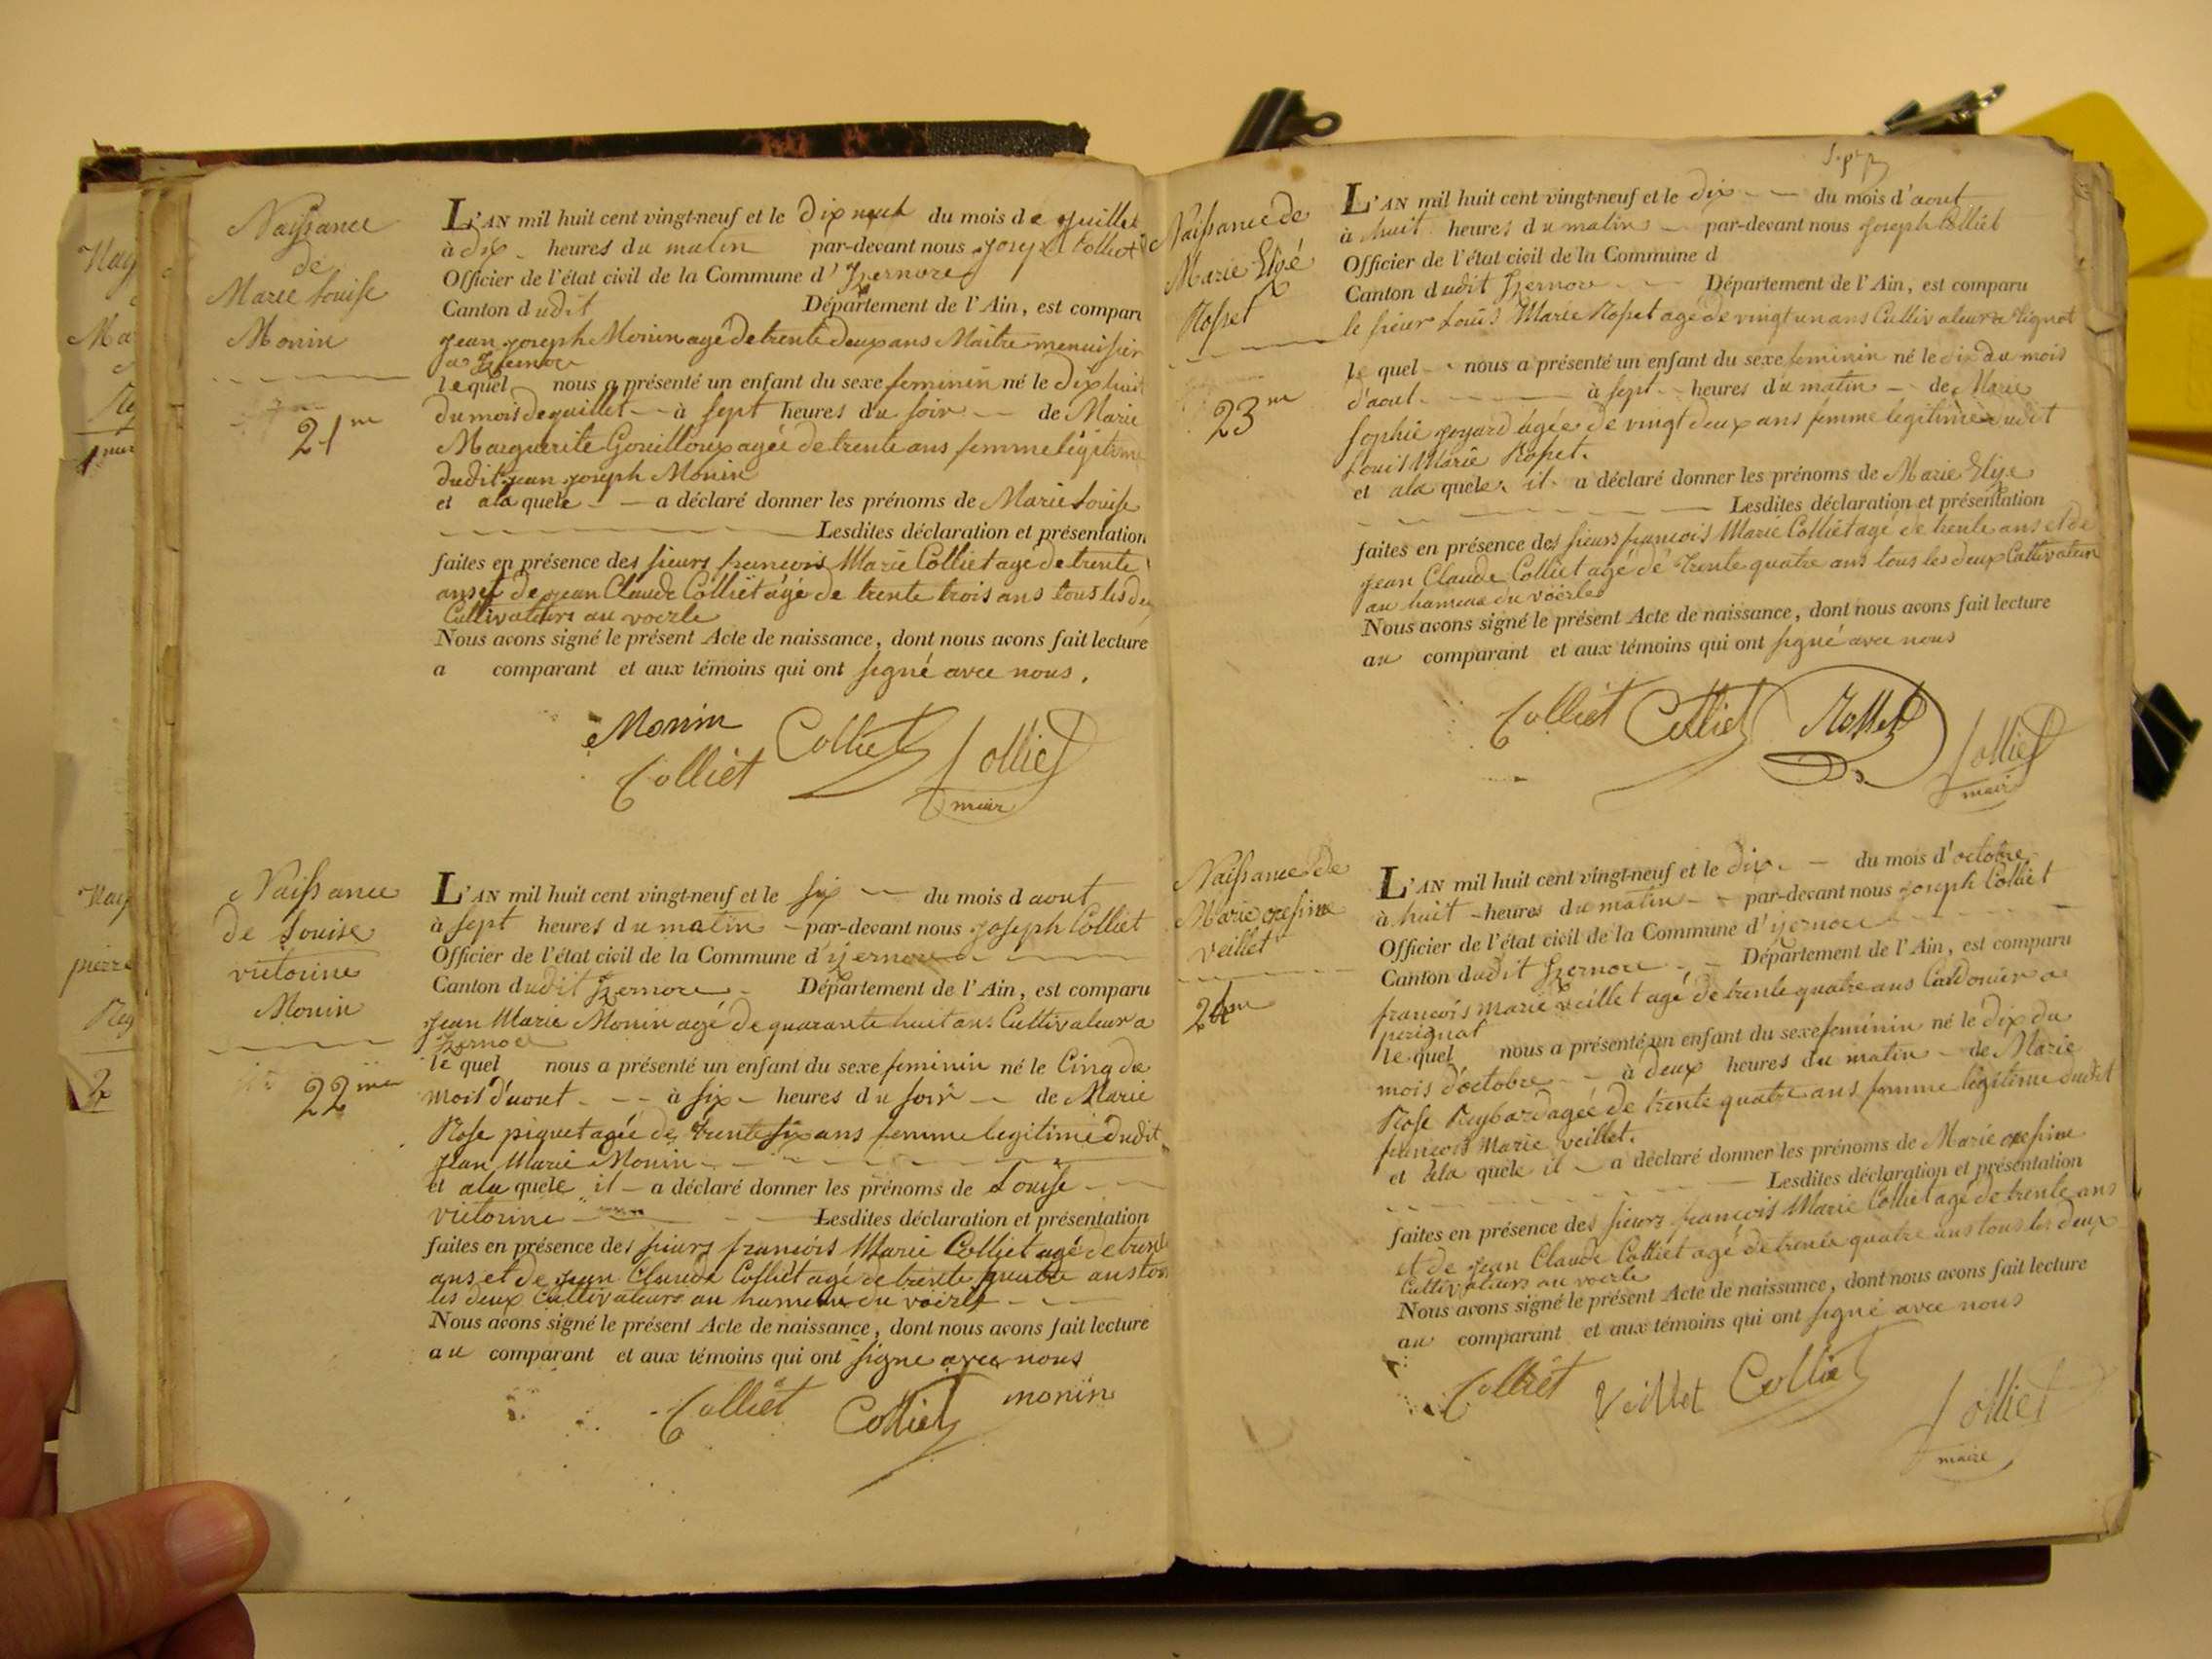 Naissance
de
Marie Louise
Monin
21me
L'AN mil huit cent vingt-neuf et le dix neuf du mois de juillet
à dix heures du matin par-devant nous joseph Colliet
Officier de l'état civil de la Commune d'Izernore
Canton dudit Département de l'Ain, est comparu
jean joseph Monin agé de trente deux ans Maitre menuisier
a Izernore
lequel nous a présenté un enfant du sexe feminin né le dix huit
du mois de juillet à sept heures du soir de Marie
Marguerite Gouilloux agée de trente ans femme légitime
dudit jean joseph Monin
et ala quele a déclaré donner les prénoms de Marie Louise
Lesdites déclaration et présentation
faites en présence des sieurs francois Marie Colliet agé de trente
ans et de jean Claude Colliet âgé de trente trois ans tous les deux
Cultivateurs au voerle
Nous avons signé le présent Acte de naissance, dont nous avons fait lecture
a comparant et aux témoins qui ont signé avec nous.
Monin Colliet
Colliet Colliet
mair
Naissance
de Louise
victorine
Monin
22me
L'AN mil huit cent vingt-neuf et le six du mois d aout
à sept heures du matin par-devant nous joseph Colliet
Officier de l'état civil de la Commune d ijernore
Canton dudit Izernore Département de l'Ain, est comparu
jean Marie Monin agé de quarante huit ans Cultivateur a
Izernore
le quel nous a présenté un enfant du sexe feminin né le Cinq du
mois d'aout à six heures du soir de Marie
Rose piquet agée de trente six ans femme legitime dudit
jean Marie Monin
et ala quele il a déclaré donner les prénoms de Louise
victorine Lesdites déclaration et présentation
faites en présence des sieurs francois Marie Colliet agé de trente
ans et de jean Claude Colliet agé de trente quatre ans tous
les deux Cultivateurs au hameau du voerle
Nous avons signé le présent Acte de naissance, dont nous avons fait lecture
au comparant et aux témoins qui ont signe avec nous
Colliet Colliet monin
Naissance de
Marie Elisé
Rosset
23me
L'AN mil huit cent vingt-neuf et le dix du mois d'aout
à huit heures du matin par-devant nous joseph Colliet
Officier de l'état civil de la Commune d
Canton dudit Izernore Département de l'Ain, est comparu
le sieur Louis Marie Rosset agé de vingt un ans Cultivateur a tignat
le quel nous a présenté un enfant du sexe feminin né le dix du mois
d'aout à sept heures du matin de Marie
sophie joyard agée de vingt deux ans femme legitime dudit
Louis Marie Rosset.
et ala quele il a déclaré donner les prénoms de Marie Elise
Lesdites déclaration et présentation
faites en présence des sieurs francois Marie Colliet agé de trente ans et de
jean Claude Colliet agé de trente quatre ans tous les deux Cultivateurs
au hameau du voerle
Nous avons signé le présent Acte de naissance, dont nous avons fait lecture
au comparant et aux témoins qui ont signé avec nous
Colliet Colliet Rosset Colliet
mair
Naissance de
Marie
veillet
24me
L'AN mil huit cent vingt-neuf et le dix du mois d'octobre
à huit heures du matin par-devant nous joseph Colliet
Officier de l'état civil de la Commune d'ijernore
Canton dudit Izernore Département de l'Ain, est comparu
francois marie veillet agé de trente quatre ans Cordonier a
perignat
le quel nous a présenté un enfant du sexe feminin né le dix du
mois d'octobre à deux heures du matin de Marie
Rose Reybard agée de trente quatre ans femme légitime dudit
francois Marie veillet.
et ala quele il a déclaré donner les prénoms de Marie
Lesdites déclaration et présentation
faites en présence des sieurs francois Marie Colliet agé de trente ans
et de jean Claude Colliet agé de trente quatre ans tous les deux
Cultivateurs au voerle
Nous avons signé le présent Acte de naissance, dont nous avons fait lecture
au comparant et aux témoins qui ont signé avec nous
Colliet Veillet Colliet
Colliet
maire